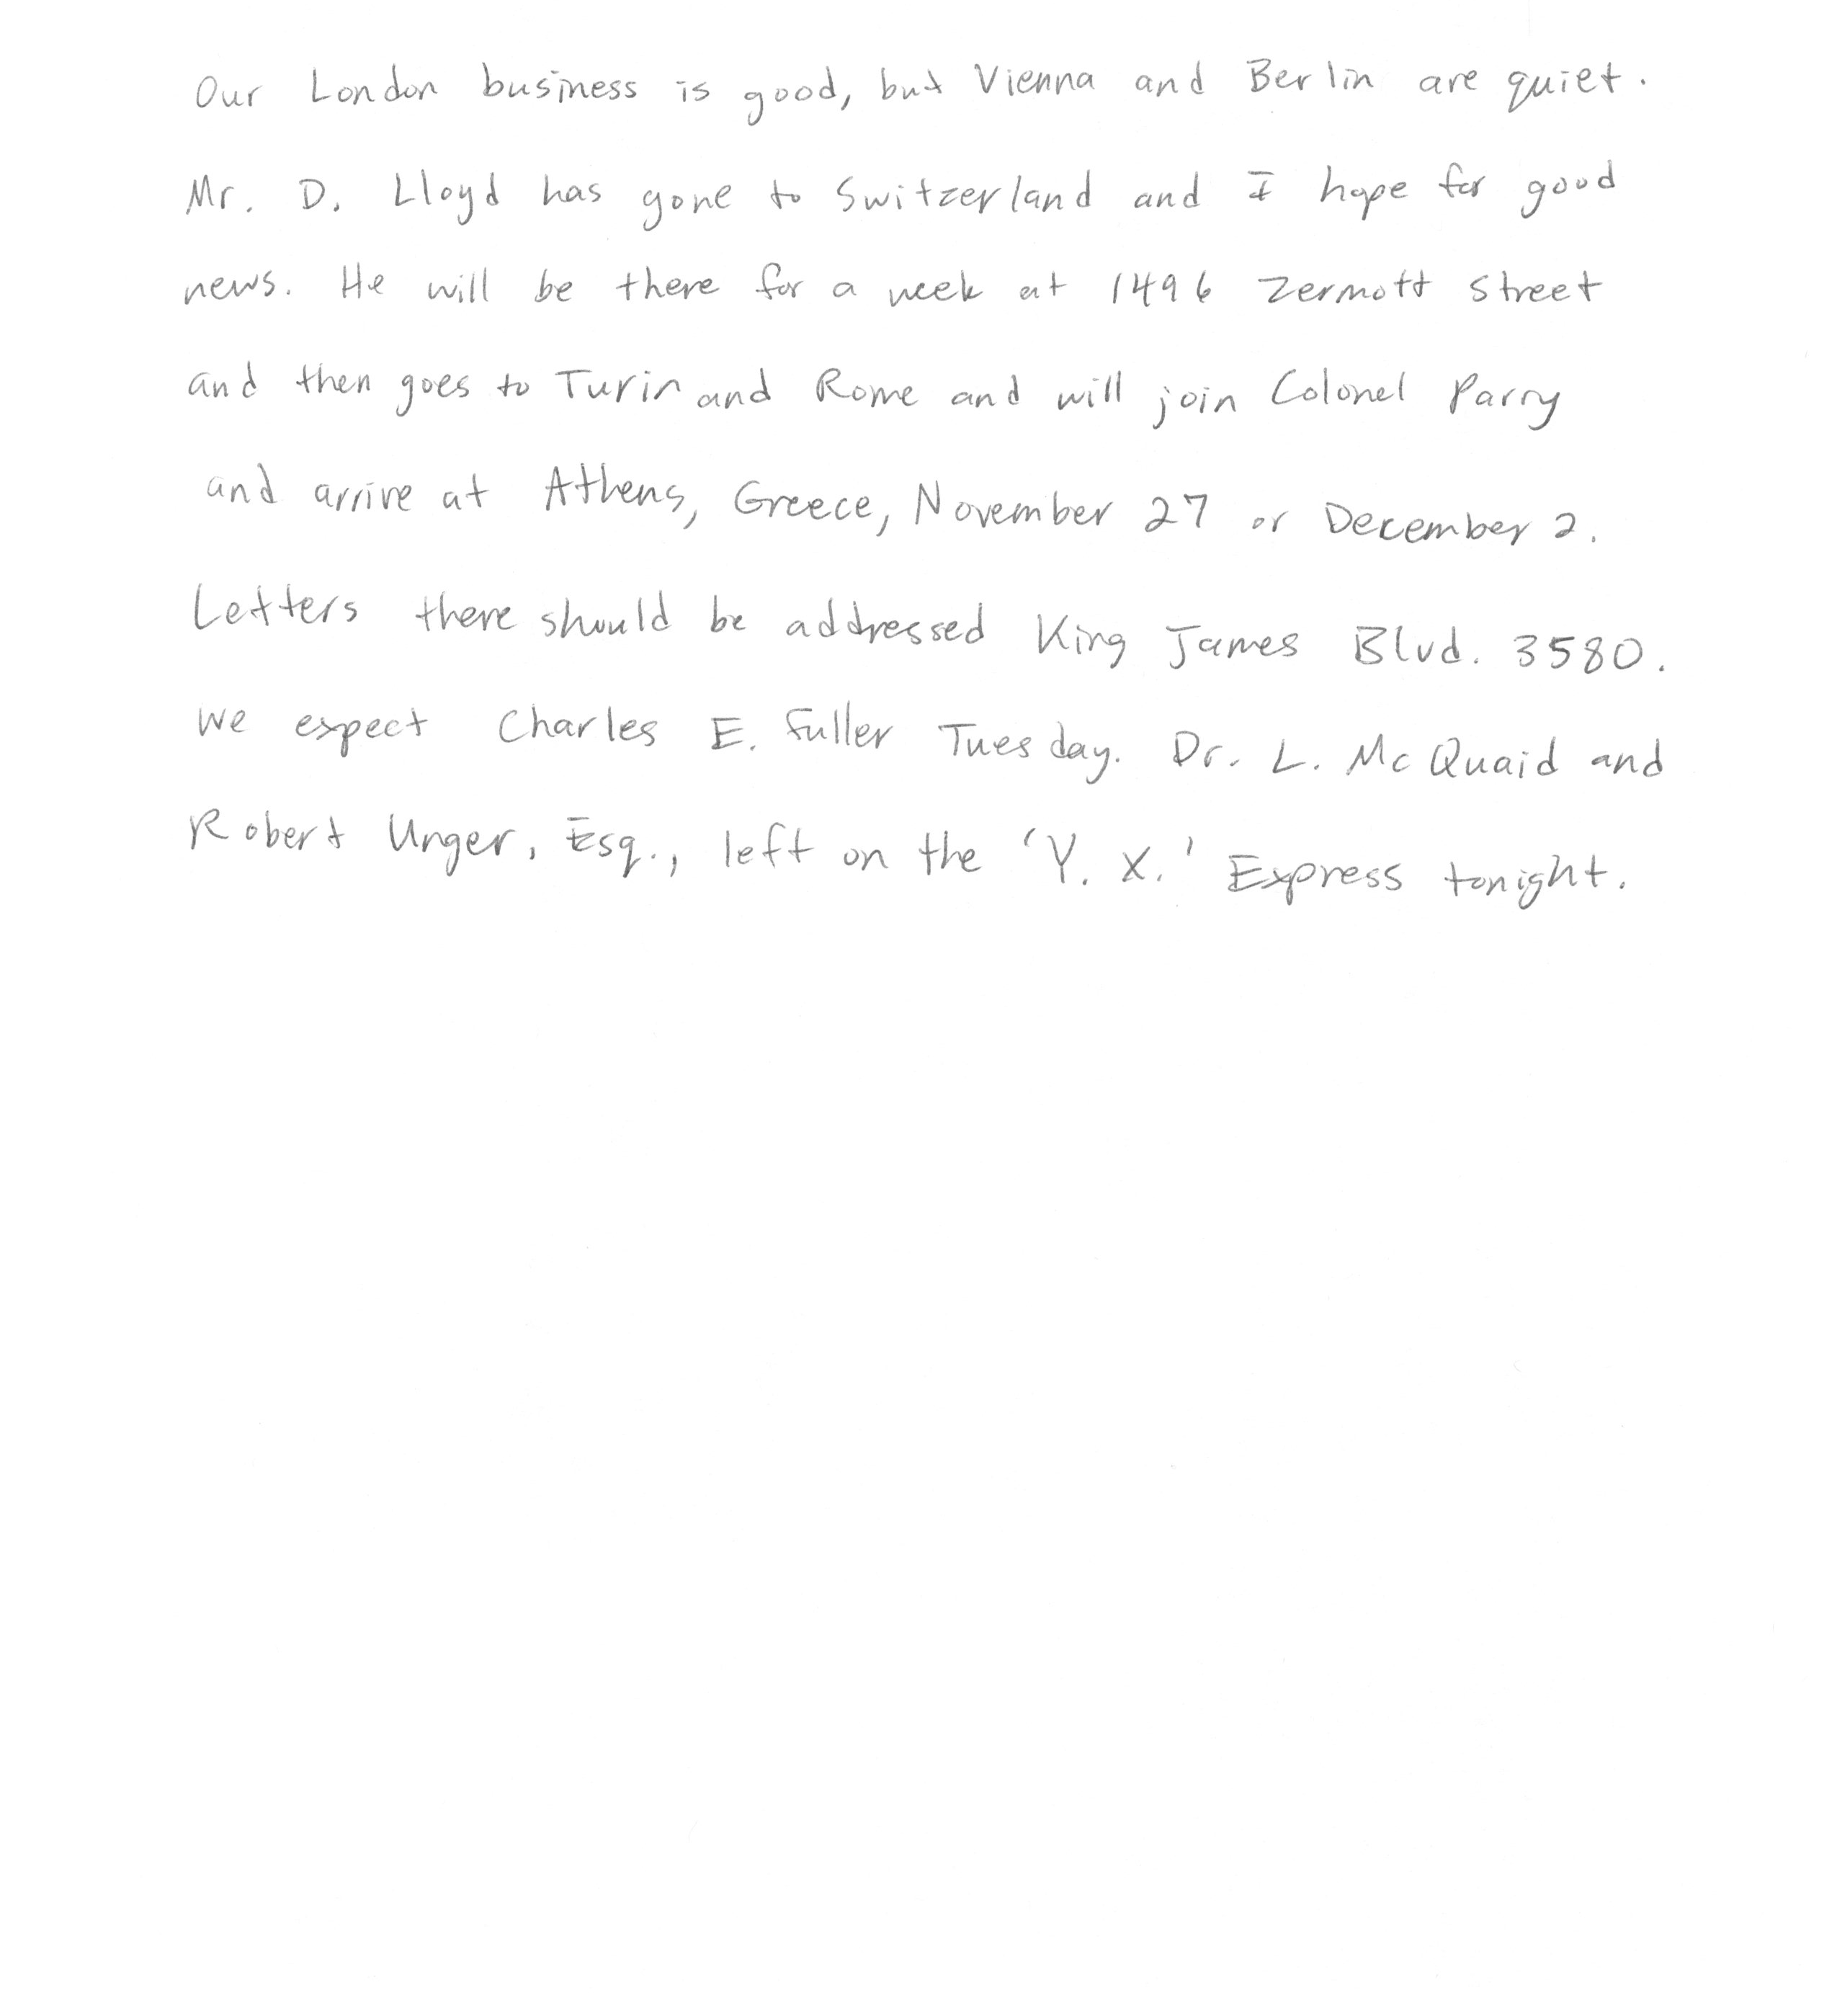 Our London business is good, but Vienna and Berlin are quiet.
Mr. D. Lloyd has gone to Switzerland and I hope for good
news. He will be there for a week at 1496 Zermott Street
and then goes to Turin and Rome and will join Colonel Parry
and arrive at Athens, Greece, November 27 or December 2.
Letters there should be addressed King James Blvd. 3580.
We expect Charles E. Fuller Tuesday. Dr. L. McQuaid and
Robert Unger, Esq., left on the 'Y. X.' Express tonight.